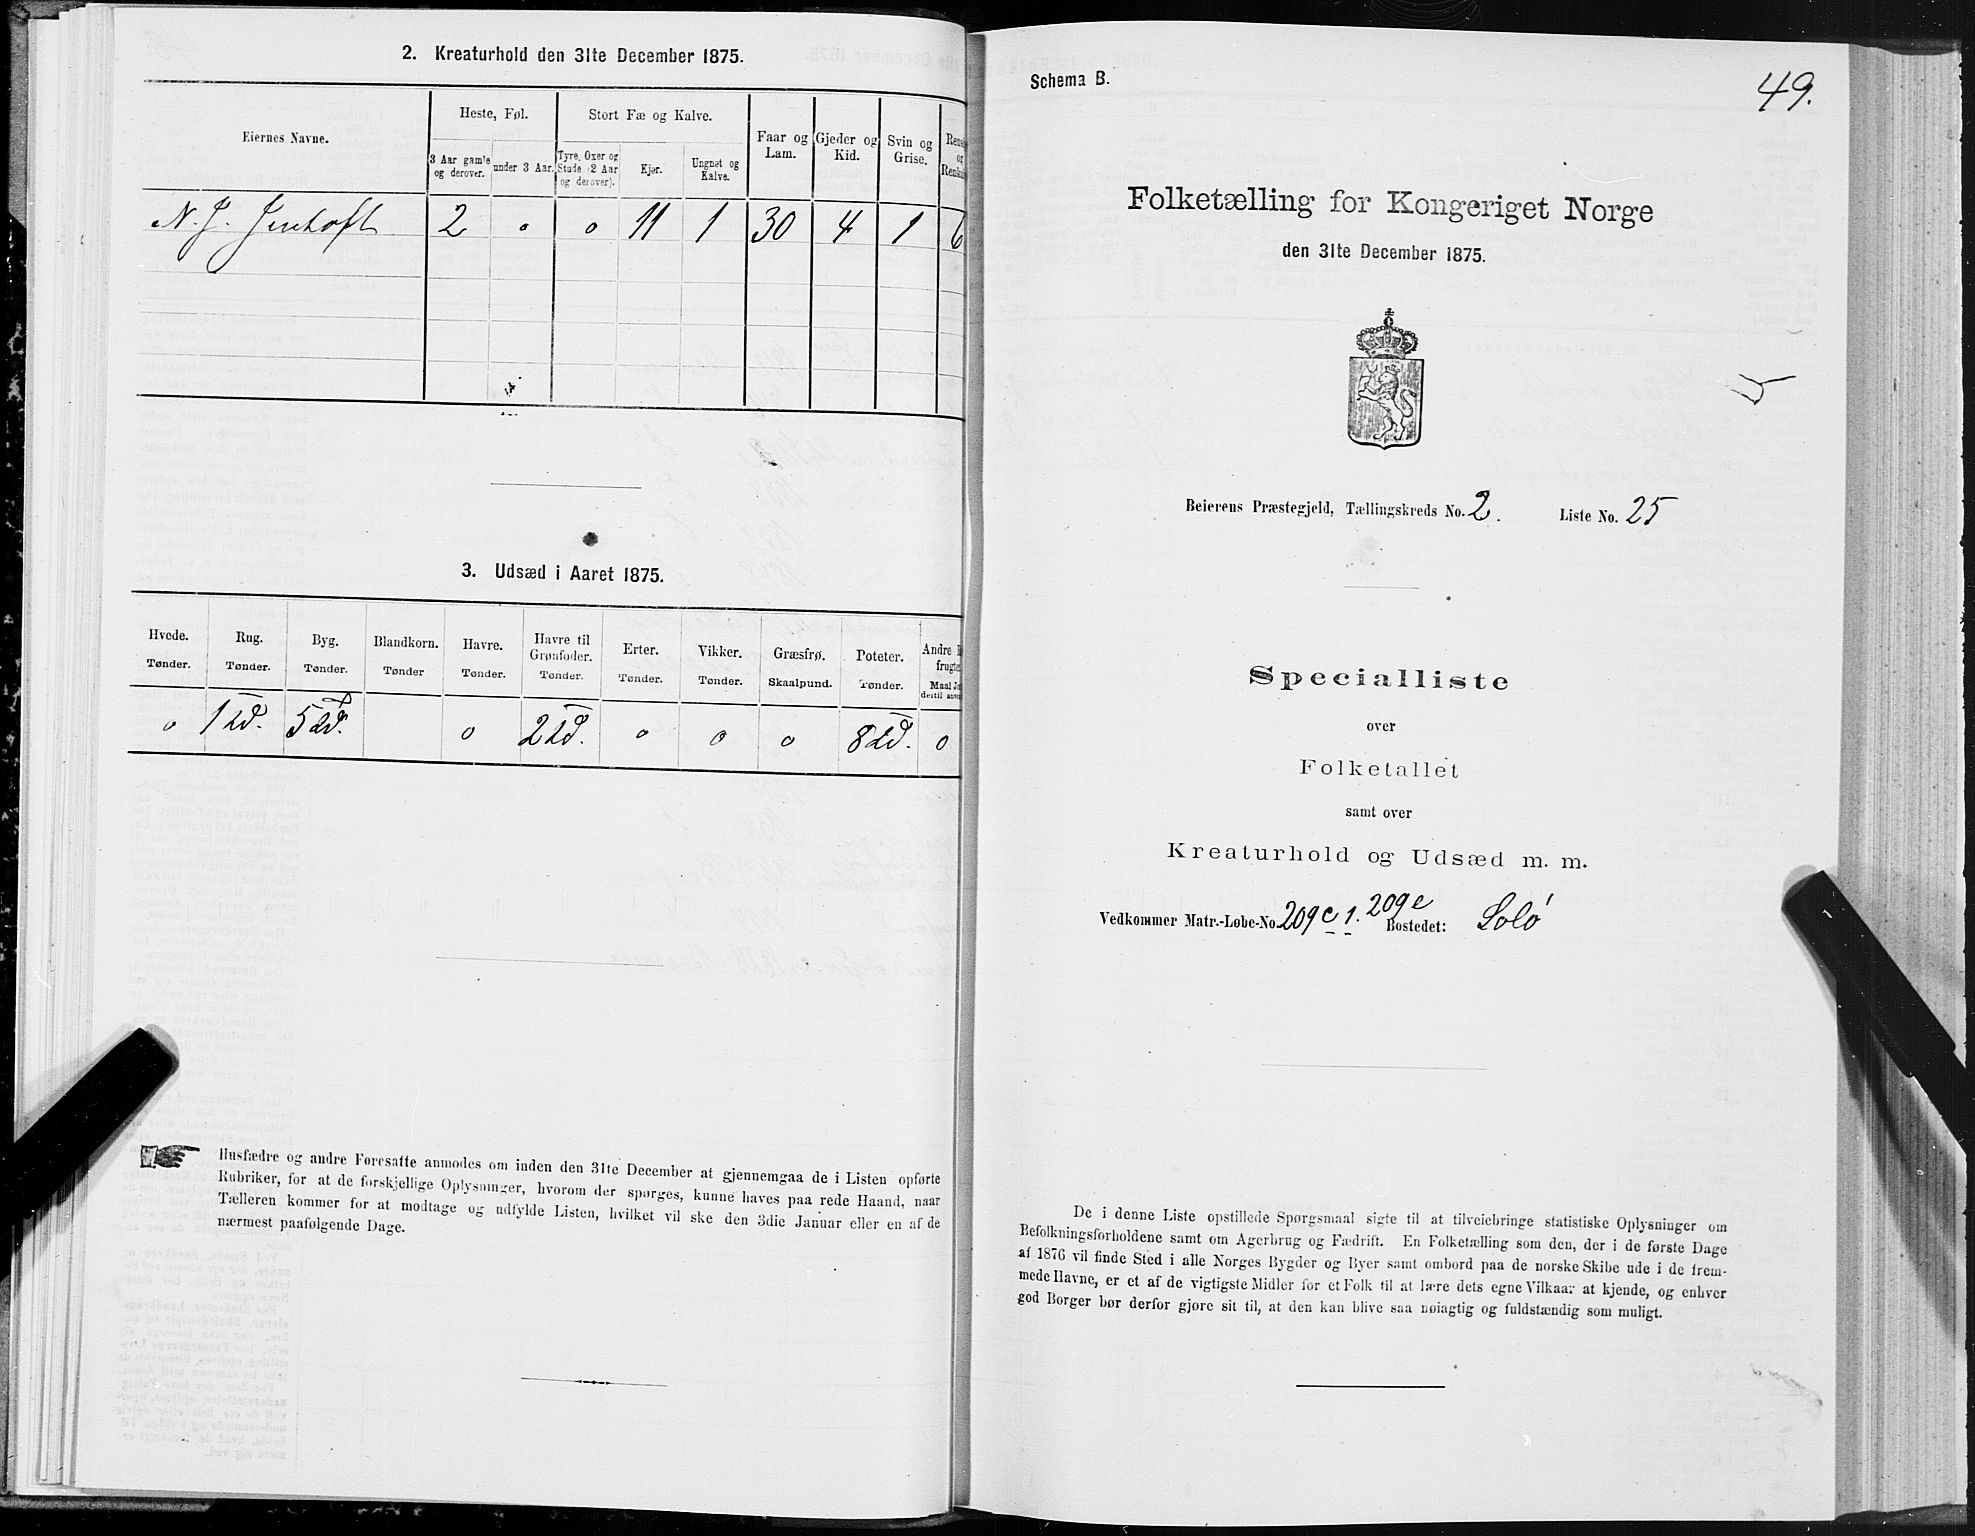 2. Kreaturhold den 31te December 1875.
Eiernes Navne.
Heste, Føl.
Stort Fæ og Kalve.
Faar og Lam.
Gjeder og Kid.
Svin og Grise.
Rens
og
Renka
3 Aar gamle og derover.
under 3 Aar.
Tyre, Oxer og Stude (2 Aar og derover).
Kjør.
Ungnøt og Kalve.
N. J. Jentoft 2 o o 11 1 30 4 1 6
3. Udsæd i Aaret 1875.
Hvede. Rug. Byg. Blandkorn. Havre. Havre til Grønfoder. Erter. Vikker. Græsfrø. Poteter. Andre
frugte
Tønder. Tønder. Tønder. Tønder Tønder. Tønder. Tønder. Tønder. Skaalpund. Tønder. Maal
o 1 Td. 5 Td. o 2 Td. o o o 8 Td. o
Husfædre og andre Foresatte anmodes om inden den 31te December at gjennemgaa de i Listen opførte
Rubriker, for at de forskjellige Oplysninger, hvorom der spørges, kunne haves paa rede Haand, naar
Tælleren kommer for at modtage og udfylde Listen, hvilket vil ske den 3die Januar eller en af de
nærmest paafølgende Dage.
Schema B.
49.
Folketælling for Kongeriget Norge
den 31te December 1875.
Beierens Præstegjeld, Tællingskreds No. 2. Liste No. 25
Specialliste
over
Folketallet
samt over
Kreaturhold og Udsæd m. m.
Vedkommer Matr.-Løbe-No. 209 c 1. 209 e Bostedet: Solø
De i denne Liste opstillede Spørgsmaal sigte til at tilveiebringe statistiske Oplysninger om
Befolkningsforholdene samt om Agerbrug og Fædrift. En Folketælling som den, der i de første Dage
af 1876 vil finde Sted i alle Norges Bygder og Byer samt ombord paa de norske Skibe ude i de frem-
mede Havne, er et af de vigtigste Midler for et Folk til at lære dets egne Vilkaar at kjende, og enhver
god Borger bør derfor gjøre sit til, at den kan blive saa nøiagtig og fuldstændig som muligt.